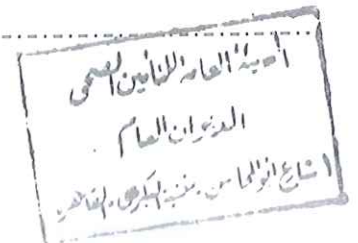 الهيئة العامة للتأمين الصحى
الديوان العام
١ شارع ابو المحاسن . منشية البكرى . القاهرة